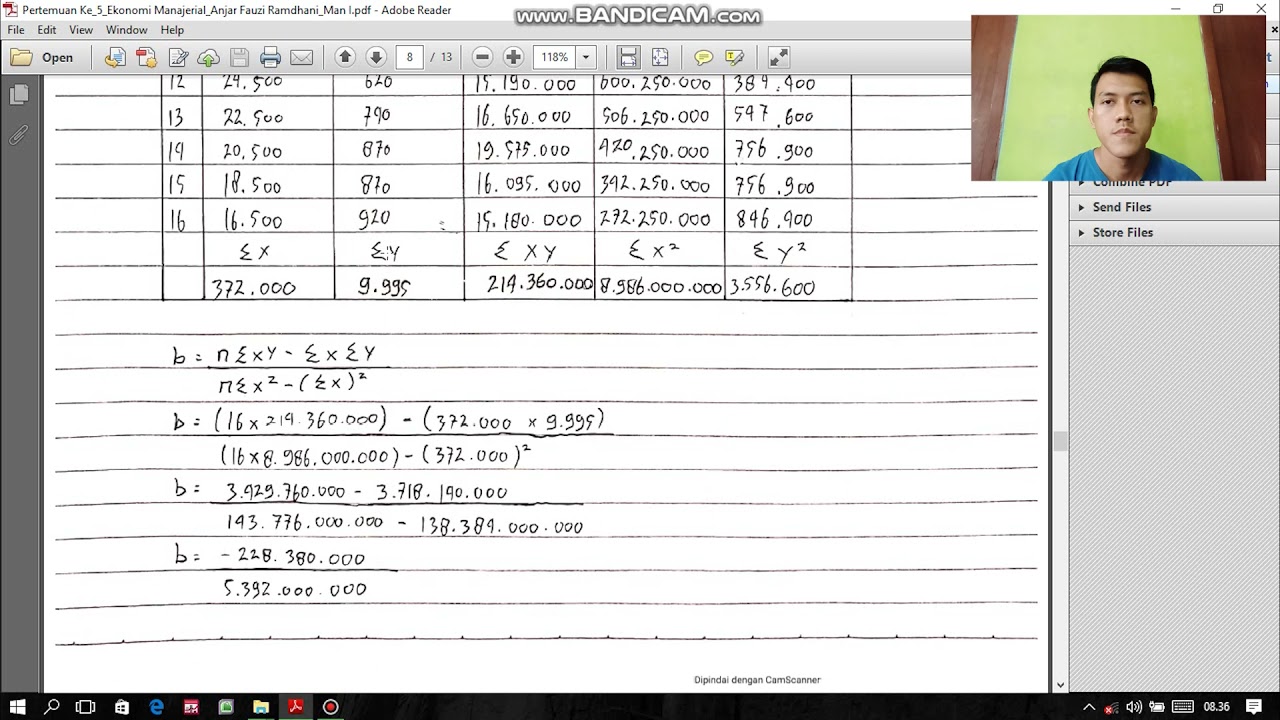 Pertemuan Ke_5_Ekonomi Manajerial_Anjar Fauzi Ramdhani_Man I.pdf - Adobe Reader
www.BANDICAM.com
File Edit View Window Help
Open 8 / 13 118%
12 24.500 620 15.190.000 600.250.000 384.400
13 22.500 740 16.650.000 506.250.000 547.600
14 20.500 870 19.575.000 420.250.000 756.900
15 18.500 870 16.095.000 342.250.000 756.900
16 16.500 920 15.180.000 272.250.000 846.400
Σ X Σ Y Σ XY Σ X² Σ Y²
372.000 9.995 214.360.000 8.986.000.000 3.556.600
b = nΣXY - ΣXΣY
nΣX² - (ΣX)²
b = (16 x 214.360.000) - (372.000 x 9.995)
(16 x 8.986.000.000) - (372.000)²
b = 3.429.760.000 - 3.718.140.000
143.776.000.000 - 138.384.000.000
b = -228.380.000
5.392.000.000
Dipindai dengan CamScanner
Combine PDF
Send Files
Store Files
08.36